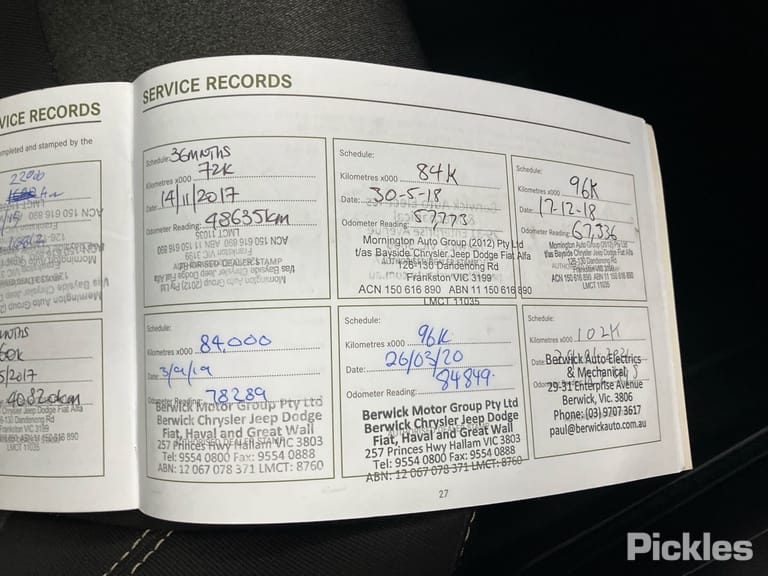 VICE RECORDS
ompleted and stamped by the
2200
ACN 150 616 890
40820km
LMCT 11035
SERVICE RECORDS
Schedule: 36MNTHS
Kilometres x000 72K
Date: 14/11/2017
Odometer Reading: 48635km
LMCT 11035
ACN 150 616 890 ABN 11 616 890
Frankston VIC 3199
AUTHORISED DEALER STAMP
t/as Bayside Chrysler Jeep Dodge Fiat Alfa
Mornington Auto Group (2012) Pty Ltd
Schedule:
Kilometres x000 84K
Date: 30-5-18
Odometer Reading: 57773
Mornington Auto Group (2012) Pty Ltd
t/as Bayside Chrysler Jeep Dodge Fiat Alfa
126-130 Dandenong Rd
Frankston VIC 3199
ACN 150 616 890 ABN 11 150 616 890
LMCT 11035
Schedule:
Kilometres x000 96K
Date: 17-12-18
Odometer Reading: 67,336
Mornington Auto Group (2012) Pty Ltd
t/as Bayside Chrysler Jeep Dodge Fiat Alfa
126-130 Dandenong Rd
Frankston VIC 3199
ACN 150 616 890 ABN 11 150 616 890
LMCT 11035
Schedule:
Kilometres x000 84,000
Date: 3/9/19
Odometer Reading: 78289
Berwick Motor Group Pty Ltd
Berwick Chrysler Jeep Dodge
Fiat, Haval and Great Wall
257 Princes Hwy Hallam VIC 3803
Tel: 9554 0800 Fax: 9554 0888
ABN: 12 067 078 371 LMCT: 8760
Schedule:
Kilometres x000 96K
Date: 26/03/20
Odometer Reading: 84849
Berwick Motor Group Pty Ltd
Berwick Chrysler Jeep Dodge
Fiat, Haval and Great Wall
257 Princes Hwy Hallam VIC 3803
Tel: 9554 0800 Fax: 9554 0888
ABN: 12 067 078 371 LMCT: 8760
Schedule:
Kilometres x000 102K
Date:
Berwick Auto Electrics
& Mechanical
29-31 Enterprise Avenue
Berwick, Vic. 3806
Phone: (03) 9707 3617
paul@berwickauto.com.au
27
Pickles